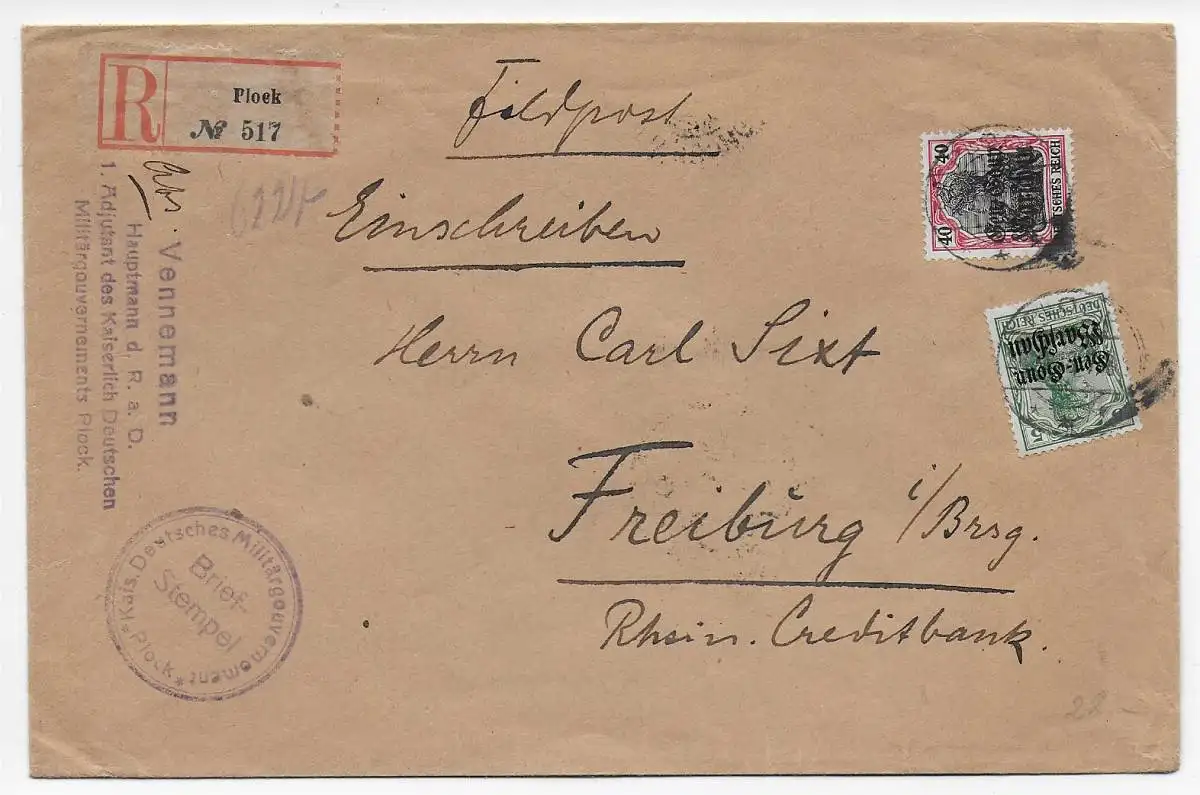 R
Plock
№ 517
Feldpost
Einschreiben
Herrn Carl Sixt
Freiburg i/Brsg.
Rhein. Creditbank.
Abs. Vennemann
Hauptmann d. R. a. D.
1. Adjutant des Kaiserlich Deutschen
Militärgouvernements Plock.
Kais. Deutsches Militärgouvernement
* Plock *
Brief-
Stempel
40 40
DEUTSCHES REICH
Gen.-Gouv.
Warschau
DEUTSCHES REICH
Gen.-Gouv.
Warschau
5